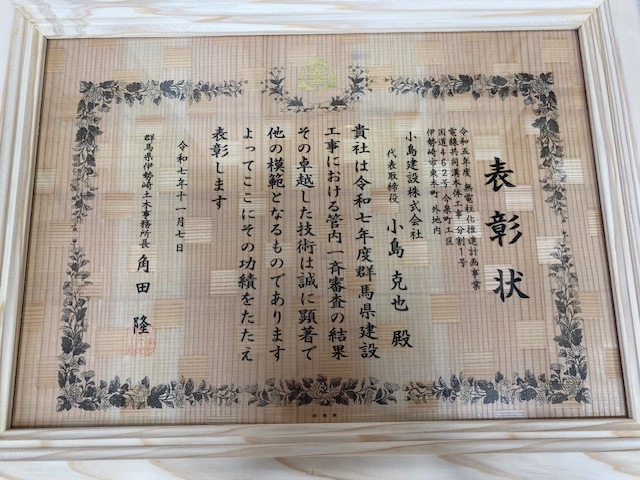 表彰状
令和五年度 無電柱化推進計画事業
電線共同溝本体工事 分割1号
国道462号 今泉町工区
伊勢崎市東本町 外地内
小島建設株式会社
代表取締役 小島克也 殿
貴社は令和七年度群馬県建設
工事における管内一斉審査の結果
その卓越した技術は誠に顕著で
他の模範となるものであります
よってここにその功績をたたえ
表彰します
令和七年十一月七日
群馬県伊勢崎土木事務所長 角田隆